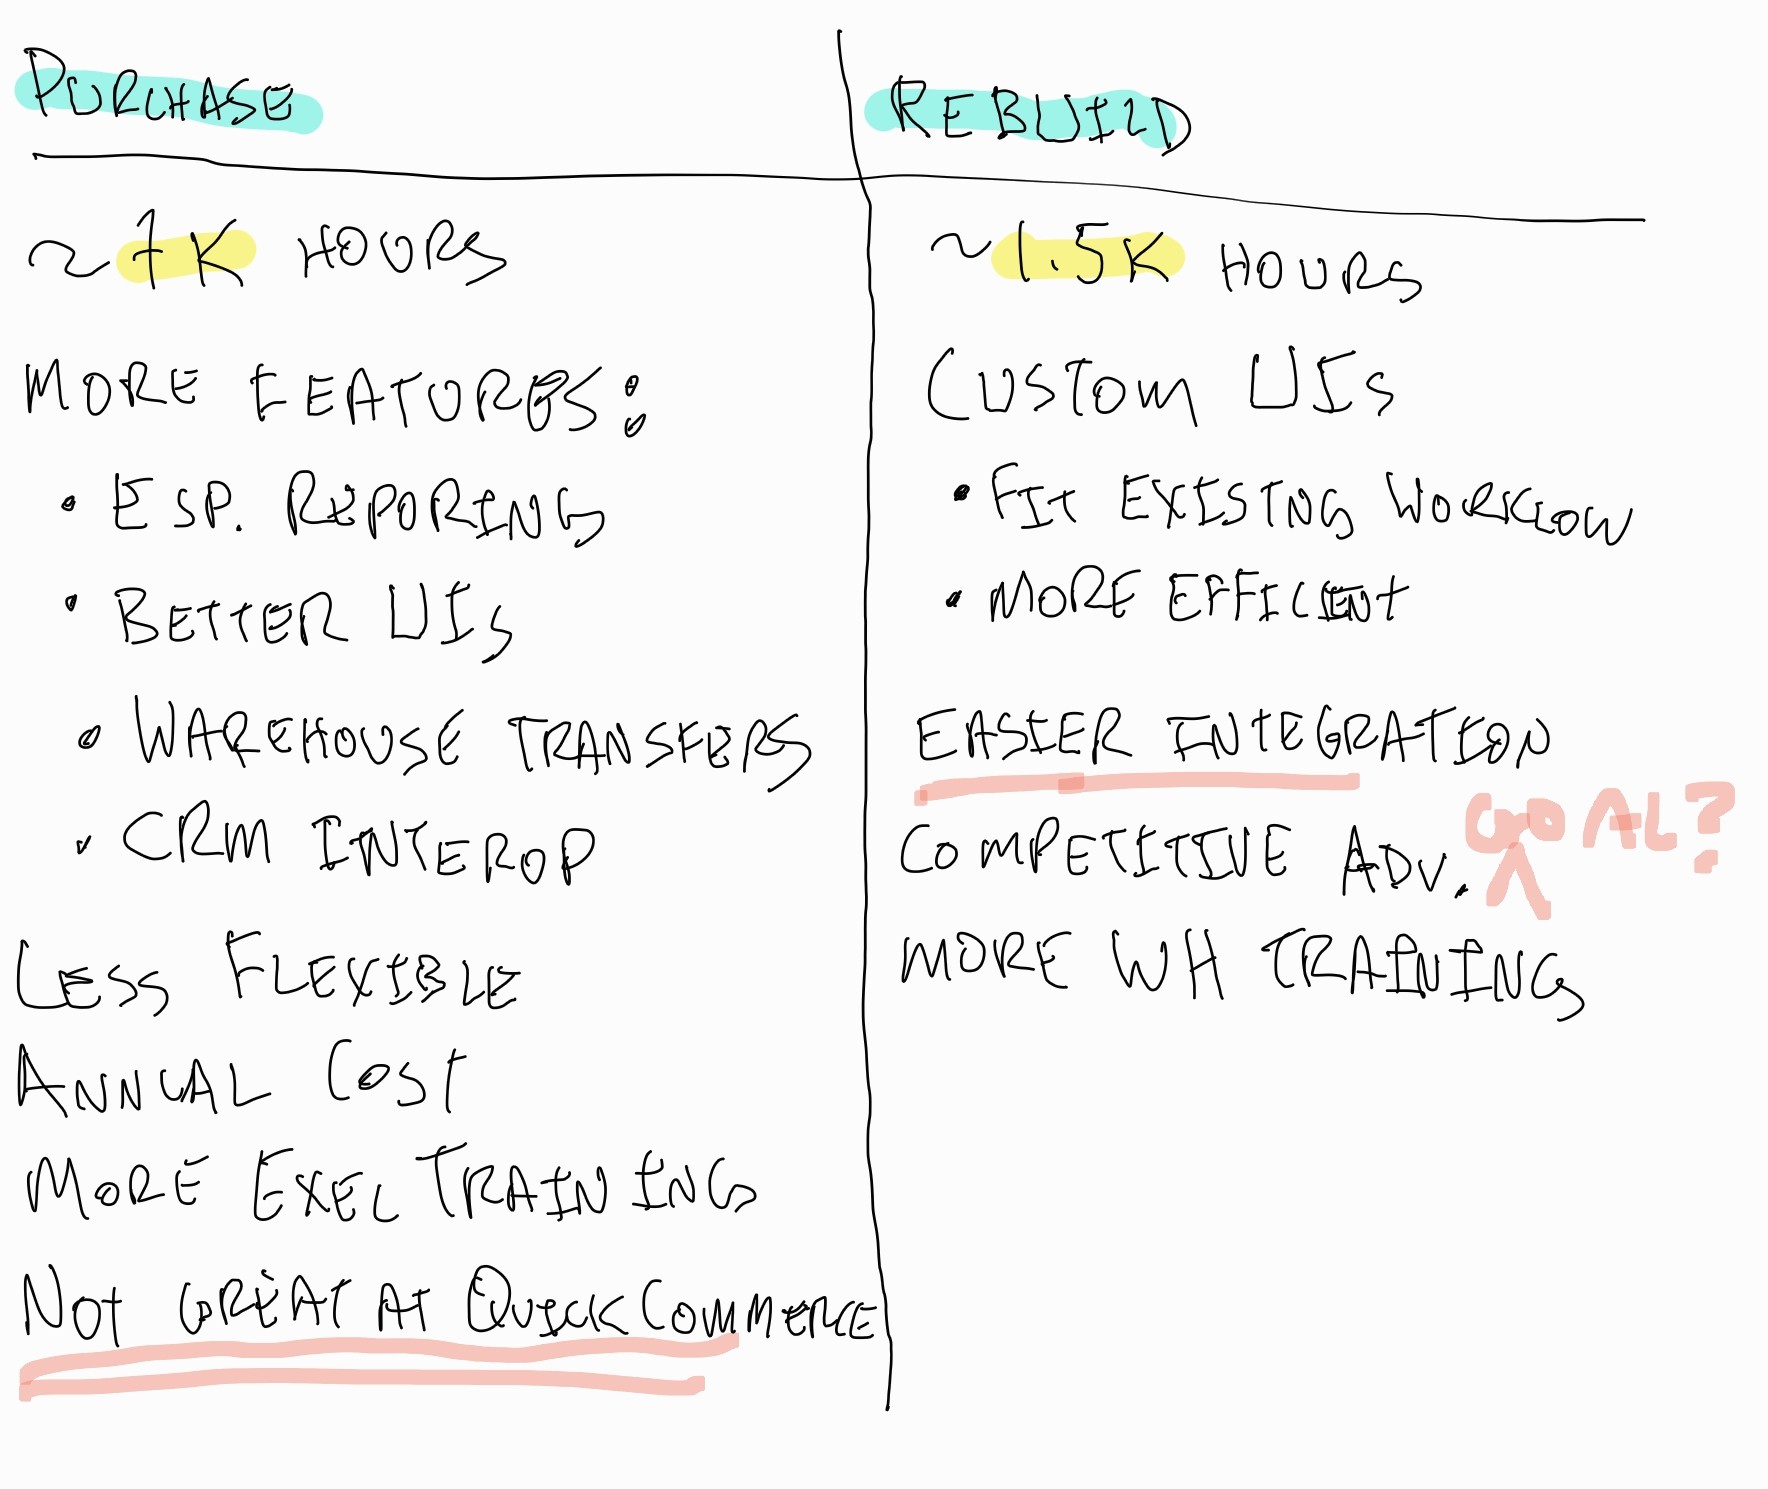 PURCHASE
~ 1K HOURS
MORE FEATURES:
• ESP. REPORING
• BETTER UIs
• WAREHOUSE TRANSFERS
• CRM INTEROP
LESS FLEXIBLE
ANNUAL COST
MORE EXEL TRAINING
NOT GREAT AT QUICK COMMERCE
REBUILD
~ 1.5K HOURS
CUSTOM UIs
• FIT EXISTNG WORKFLOW
• MORE EFFICIENT
EASIER INTEGRATION
GOAL?
COMPETITIVE ADV.
MORE WH TRAINING